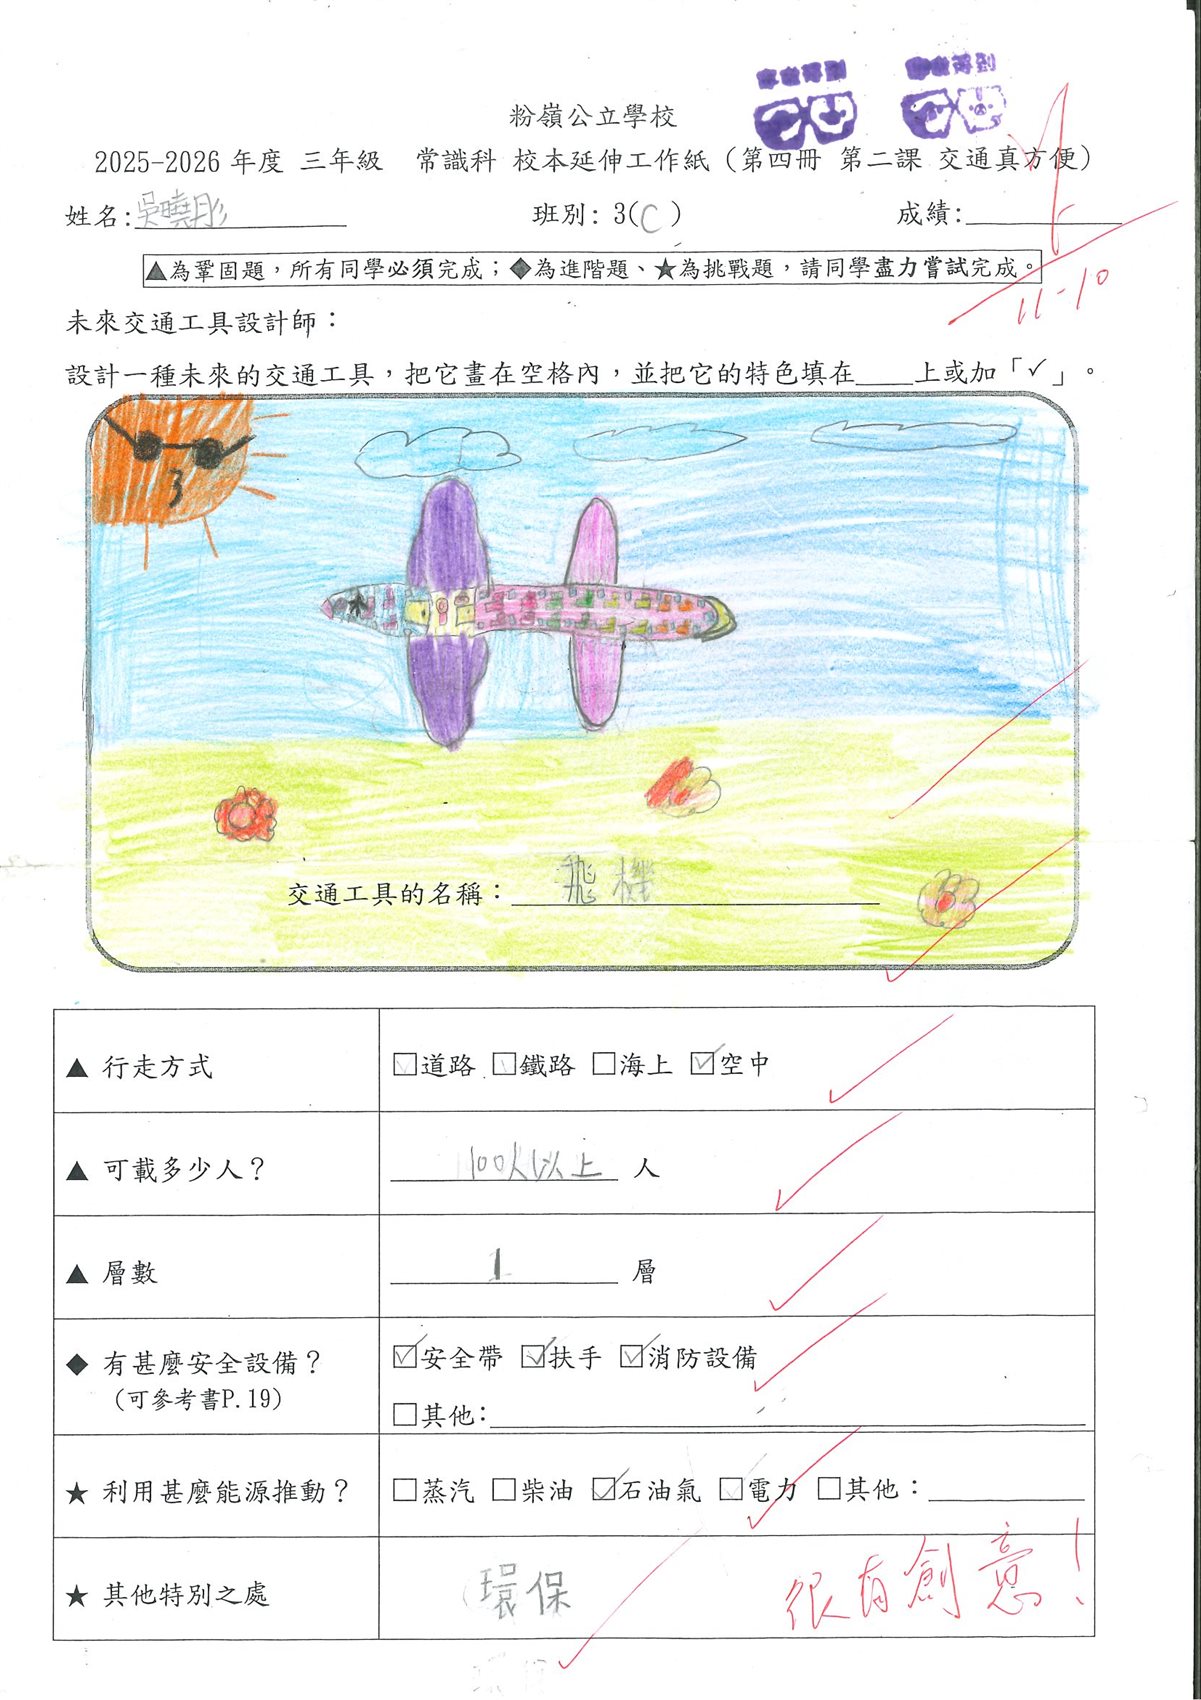 粉嶺公立學校
2025-2026 年度 三年級 常識科 校本延伸工作紙 (第四冊 第二課 交通真方便)
姓名:吳曉彤 班別: 3(C) 成績:
▲為鞏固題，所有同學必須完成；◆為進階題、★為挑戰題，請同學盡力嘗試完成。
11-10
未來交通工具設計師：
設計一種未來的交通工具，把它畫在空格內，並把它的特色填在____上或加「✓」。
交通工具的名稱：飛機
▲ 行走方式 □道路 □鐵路 □海上 ☑空中
▲ 可載多少人？ 100人以上 人
▲ 層數 1 層
◆ 有甚麼安全設備？ ☑安全帶 ☑扶手 ☑消防設備
(可參考書P.19) □其他:
★ 利用甚麼能源推動？ □蒸汽 □柴油 ☑石油氣 □電力 □其他：
★ 其他特別之處 環保 很有創意！